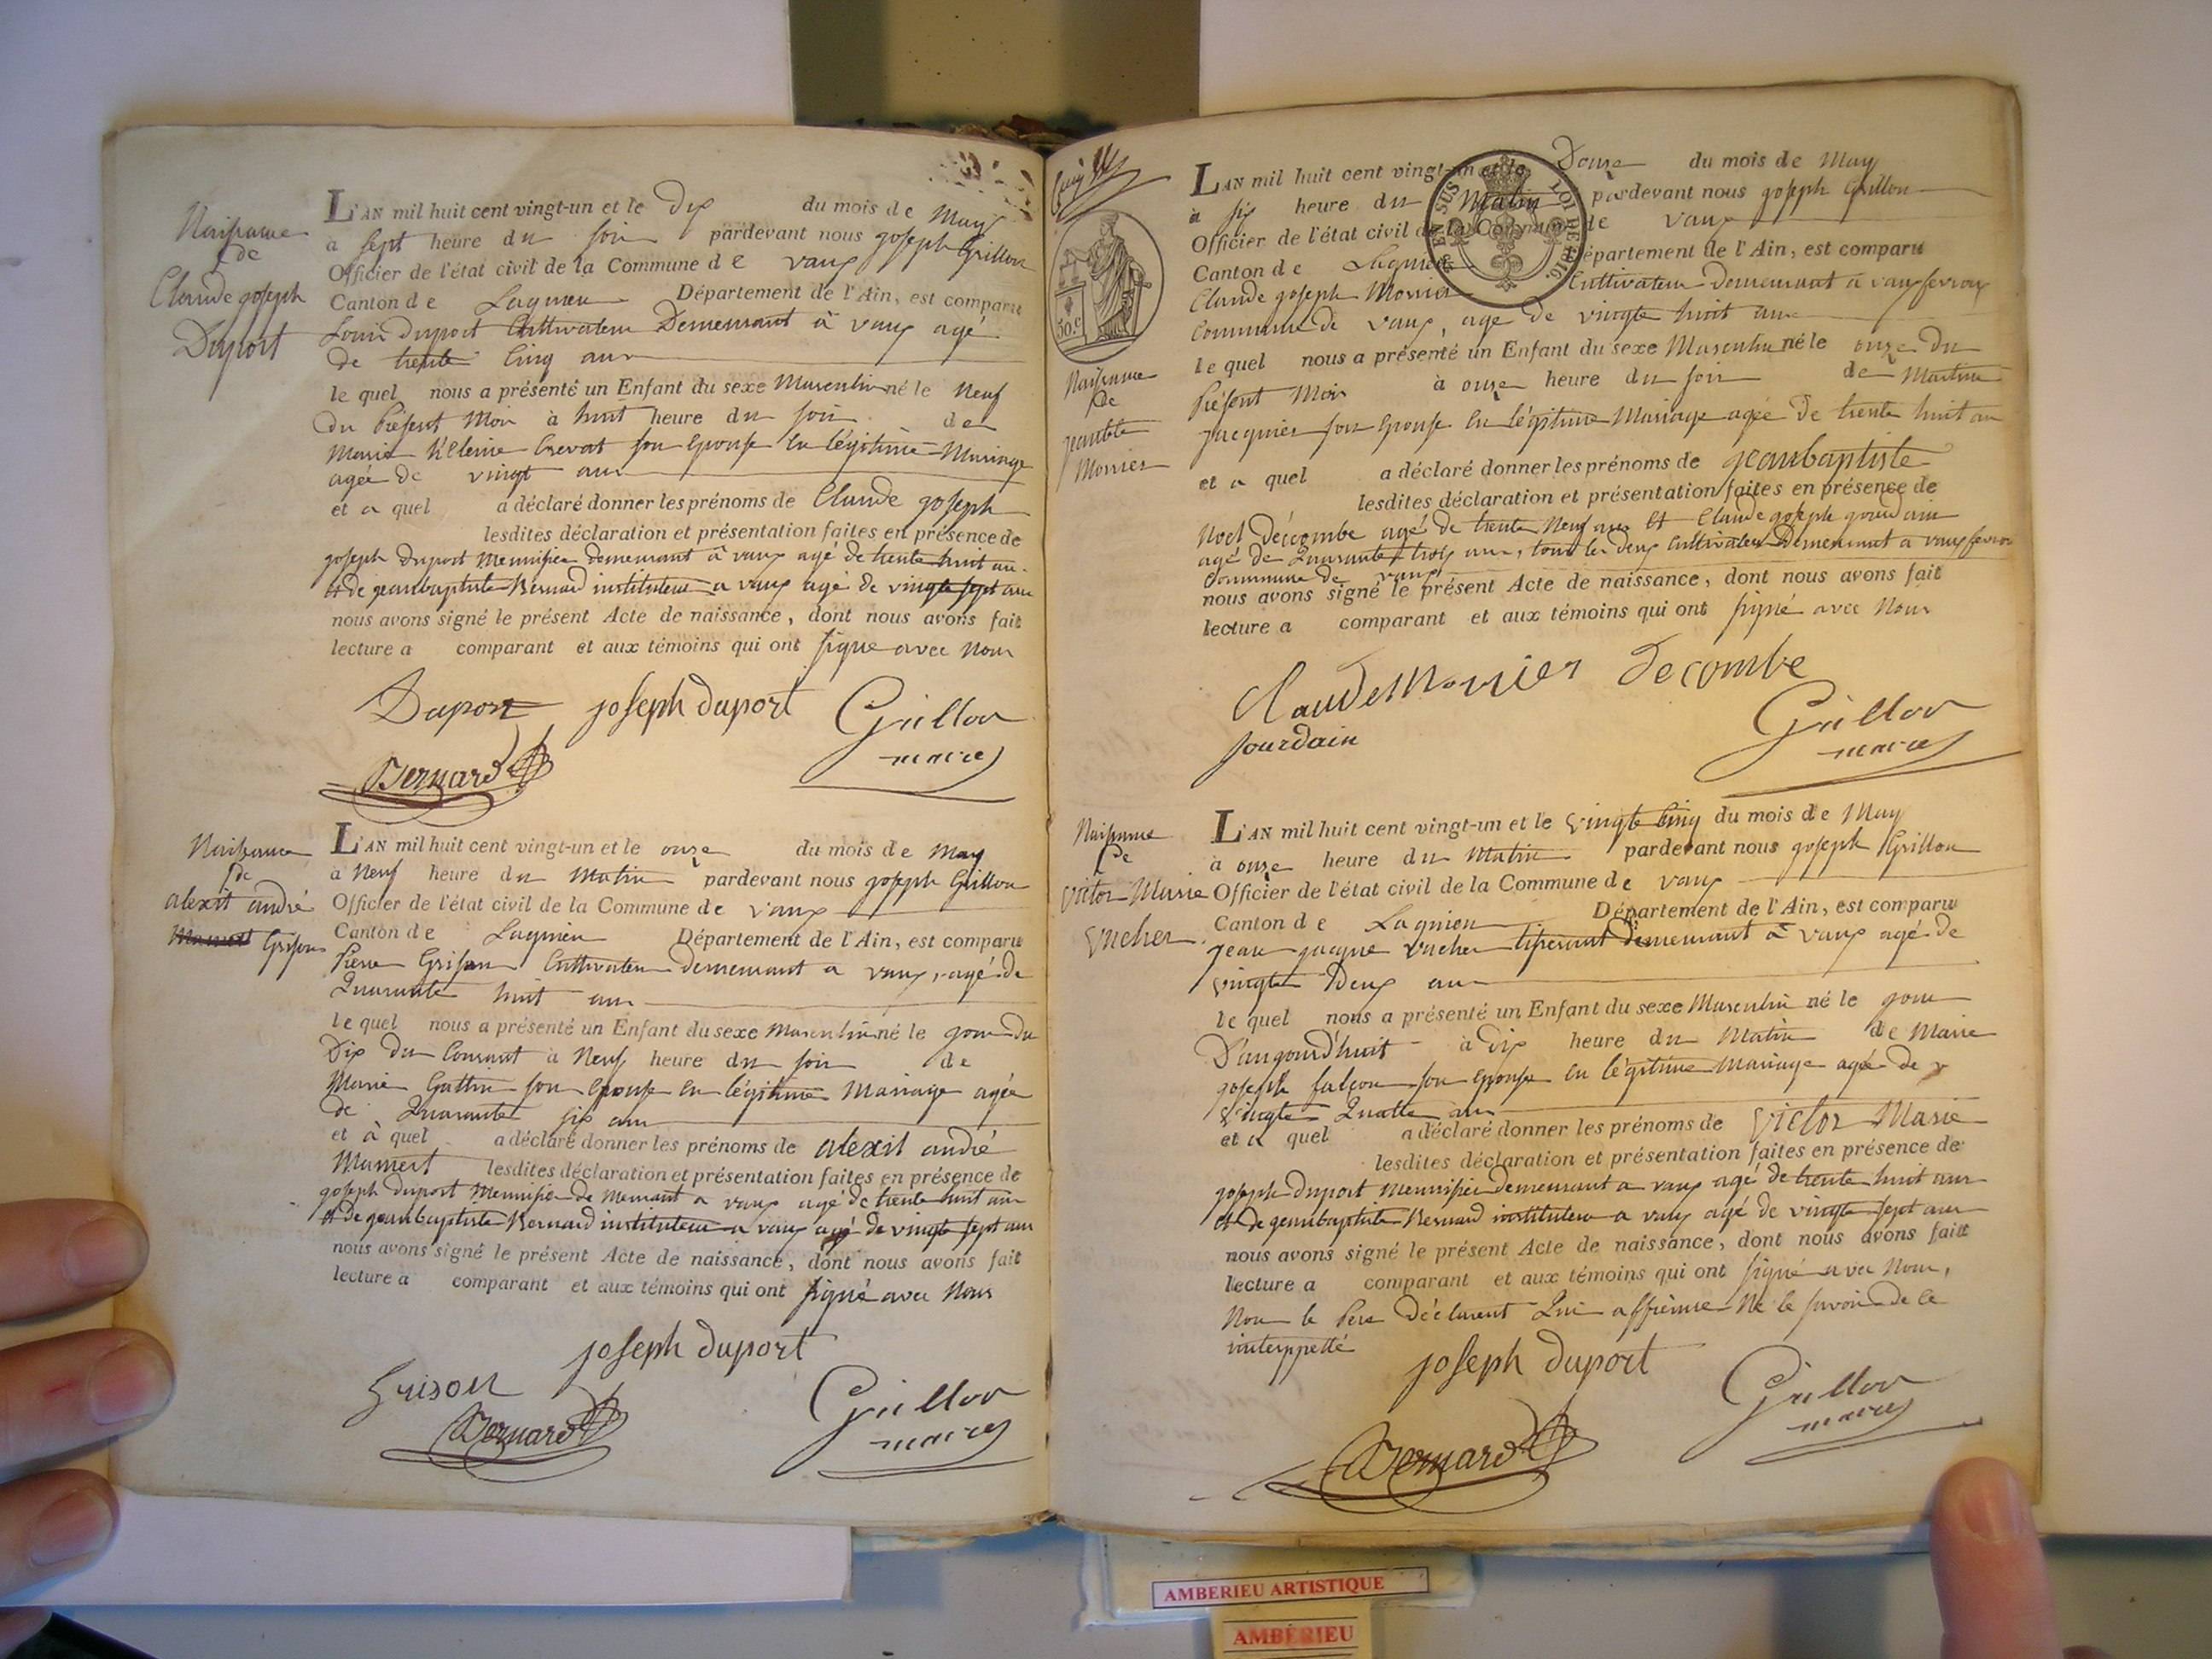 Naissance
de
Claude goseph
Duport
L'AN mil huit cent vingt-un et le Dix du mois de May
à sept heure du soir pardevant nous goseph Grillon
Officier de l'état civil de la Commune de vaux
Canton de Lagnieu Département de l'Ain, est comparu
Louis Duport Cultivateur Demeurant à vaux agé
de trente Cinq ans
le quel nous a présenté un Enfant du sexe Masculin né le Neuf
du Présent Moi à huit heure du soir de
Marie son Epouse En légitime Mariage
agée de vingt ans
et a quel a déclaré donner les prénoms de Claude goseph
lesdites déclaration et présentation faites en présence de
goseph Duport Menuisier demeurant à vaux agé de trente huit an
et de geanbaptiste Bernard instituteur a vaux agé de vingte sept ans
nous avons signé le présent Acte de naissance, dont nous avons fait
lecture a comparant et aux témoins qui ont signe avec Nous
Duport joseph duport Grillon
maire
Bernard
Naissance
de
alexit andré
Grison
L'AN mil huit cent vingt-un et le onze du mois de May
à Neuf heure du Matin pardevant nous goseph Grillon
Officier de l'état civil de la Commune de vaux
Canton de Lagnieu Département de l'Ain, est comparu
Pierre Grison Cultivateur demeurant a vaux, agé de
Quarante huit ans
le quel nous a présenté un Enfant du sexe Masculin né le gour du
Dix du Courant à Neuf heure du soir de
Marie Gottin son Epouse En légitime Mariage agée
de Quarante six ans
et à quel a déclaré donner les prénoms de alexit andré
Mamert lesdites déclaration et présentation faites en présence de
goseph duport Menuisier demeurant a vaux agé de trente huit ans
et de geanbaptiste Bernard instituteur a vaux agé de vingte sept ans
nous avons signé le présent Acte de naissance, dont nous avons fait
lecture a comparant et aux témoins qui ont signé avec Nous
joseph duport
Grison Grillon
Bernard maire
30.c
Naissance
de
Monier
L'AN mil huit cent vingt-un et le Douze du mois de May
à six heure du Matin pardevant nous goseph Grillon
Officier de l'état civil de la Commune de vaux
Canton de Lagnieu Département de l'Ain, est comparu
EN SUS LOI DE 1816.
Claude goseph Monier Cultivateur Demeurant à vaux fevroux
Commune de vaux, agé de vingte huit ans
le quel nous a présenté un Enfant du sexe Masculin né le onze Du
Présent Mois à onze heure du soir de Martine
Jacquier son Epouse En légitime Mariage agée De trente huit an
et a quel a déclaré donner les prénoms de geanbaptiste
lesdites déclaration et présentation faites en présence de
Noel Décombe agé de trente Neuf ans Et Claude goseph gourdain
agé de Quarante trois ans, tous les deux Cultivateur Demeurant a vaux fevrou
commune de vaux
nous avons signé le présent Acte de naissance, dont nous avons fait
lecture a comparant et aux témoins qui ont signé avec Nous
Claude Monier Decombe
Jourdain Grillon
maire
Naissance
De
Victor Marie
Vucher
L'AN mil huit cent vingt-un et le vingte Cinq du mois de May
à onze heure du Matin pardevant nous goseph Grillon
Officier de l'état civil de la Commune de vaux
Canton de Lagnieu Département de l'Ain, est comparu
gean gacque Vucher tisserant demeurant à vaux agé de
vingte Deux ans
le quel nous a présenté un Enfant du sexe Masculin né le gour
D'augourd'huit à Dix heure du Matin de Marie
goseph falcon son Epouse En légitime Mariage agée de
vingte Quatre ans
et a quel a déclaré donner les prénoms de Victor Marie
lesdites déclaration et présentation faites en présence de
goseph duport menuisier demeurant a vaux agé de trente huit ans
et de geanbaptiste Bernard instituteur a vaux agé de vingte sept ans
nous avons signé le présent Acte de naissance, dont nous avons fait
lecture a comparant et aux témoins qui ont signé avec Nous,
Non le Pere Déclarent Qui affierme Ne le savoir de ce
interppellé
joseph duport Grillon
maire
Bernard
AMBERIEU ARTISTIQUE
AMBÉRIEU